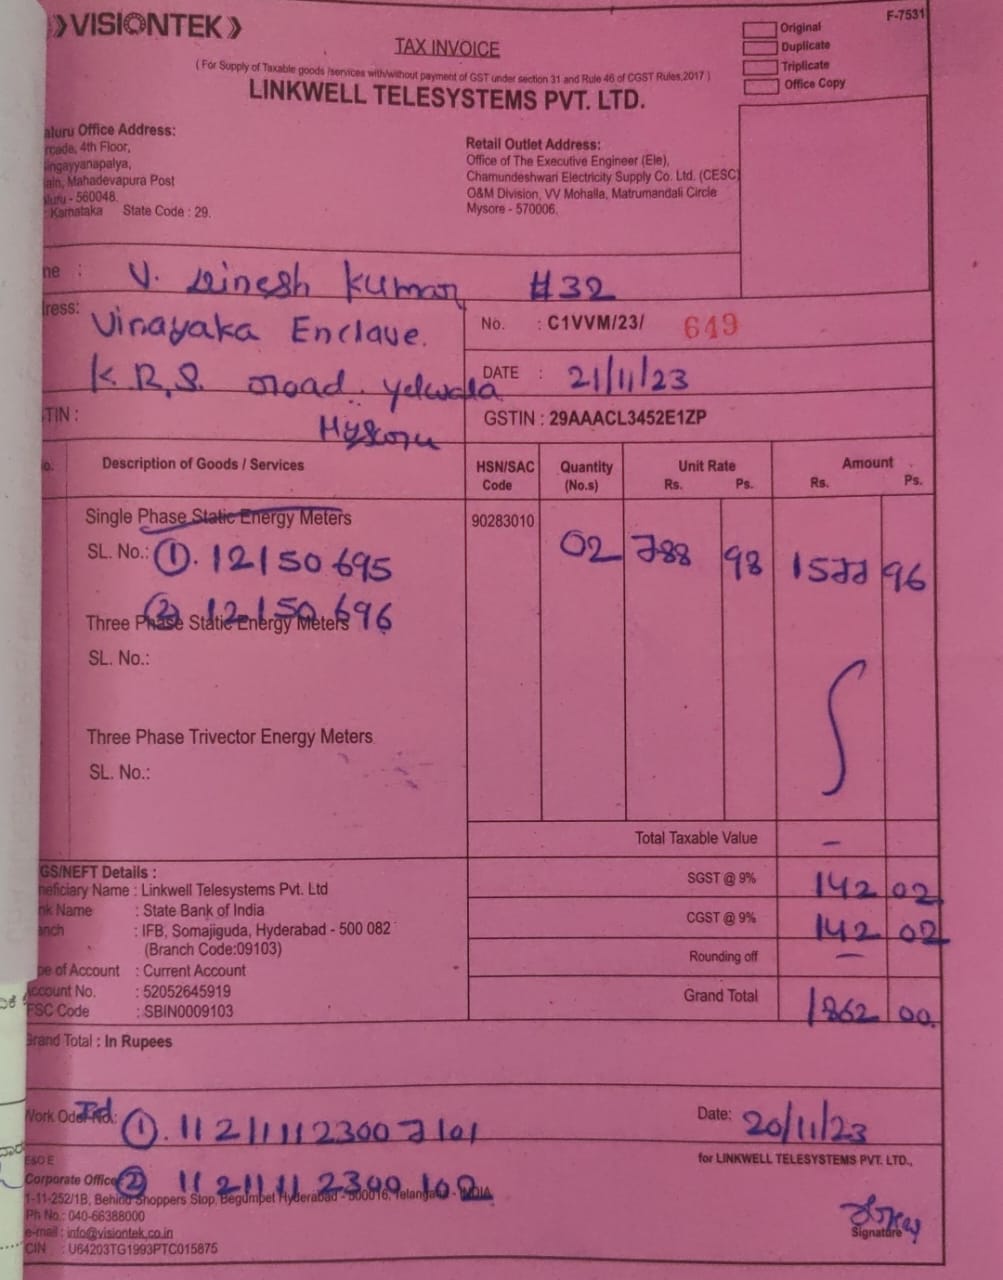 VISIONTEK
F-7531
TAX INVOICE
Original
Duplicate
Triplicate
Office Copy
( For Supply of Taxable goods /services with/without payment of GST under section 31 and Rule 46 of CGST Rules,2017 )
LINKWELL TELESYSTEMS PVT. LTD.
aluru Office Address:
rcade, 4th Floor,
ingayyanapalya,
ain, Mahadevapura Post
aluru - 560048.
: Karnataka State Code : 29.
Retail Outlet Address:
Office of The Executive Engineer (Ele),
Chamundeshwari Electricity Supply Co. Ltd. (CESC)
O&M Division, VV Mohalla, Matrumandali Circle
Mysore - 570006.
me : V. Dinesh Kumar #32
ress: Vinayaka Enclave.
No. : C1VVM/23/ 649
K.R.S. road. yelwala
DATE : 21/11/23
TIN : Mysoru
GSTIN : 29AAACL3452E1ZP
o. Description of Goods / Services HSN/SAC Code Quantity (No.s) Unit Rate Rs. Ps. Amount Rs. Ps.
Single Phase Static Energy Meters 90283010 02 788 98 1577 96
SL. No.: ①. 12150695
② 12150696
Three Phase Static Energy Meters
SL. No.:
Three Phase Trivector Energy Meters
SL. No.:
Total Taxable Value -
SGST @ 9% 142 02
CGST @ 9% 142 02
Rounding off -
Grand Total 1862 00
GS/NEFT Details :
neficiary Name : Linkwell Telesystems Pvt. Ltd
nk Name : State Bank of India
anch : IFB, Somajiguda, Hyderabad - 500 082
(Branch Code:09103)
pe of Account : Current Account
Account No. : 52052645919
FSC Code : SBIN0009103
Grand Total : In Rupees
Work Oder No.: ①. 112111123007101
Date: 20/11/23
E&O E
for LINKWELL TELESYSTEMS PVT. LTD.,
Corporate Office
1-11-252/1B, Behind Shoppers Stop, Begumpet Hyderabad - 500016, Telangana - INDIA
Ph No.: 040-66388000
e-mail : info@visiontek.co.in
CIN : U64203TG1993PTC015875
Signature